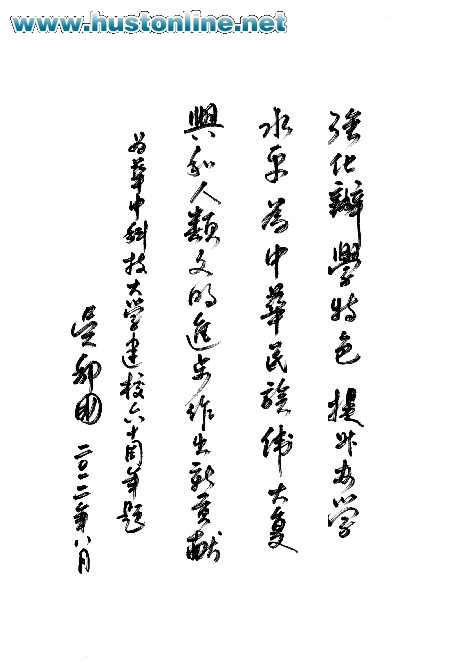 www.hustonline.net
強化辦學特色 提升办学
水平為中華民族偉大复
興和人類文明進步作出新貢献
为華中科技大学建校六十周年題
吴邦国 二〇一二年八月